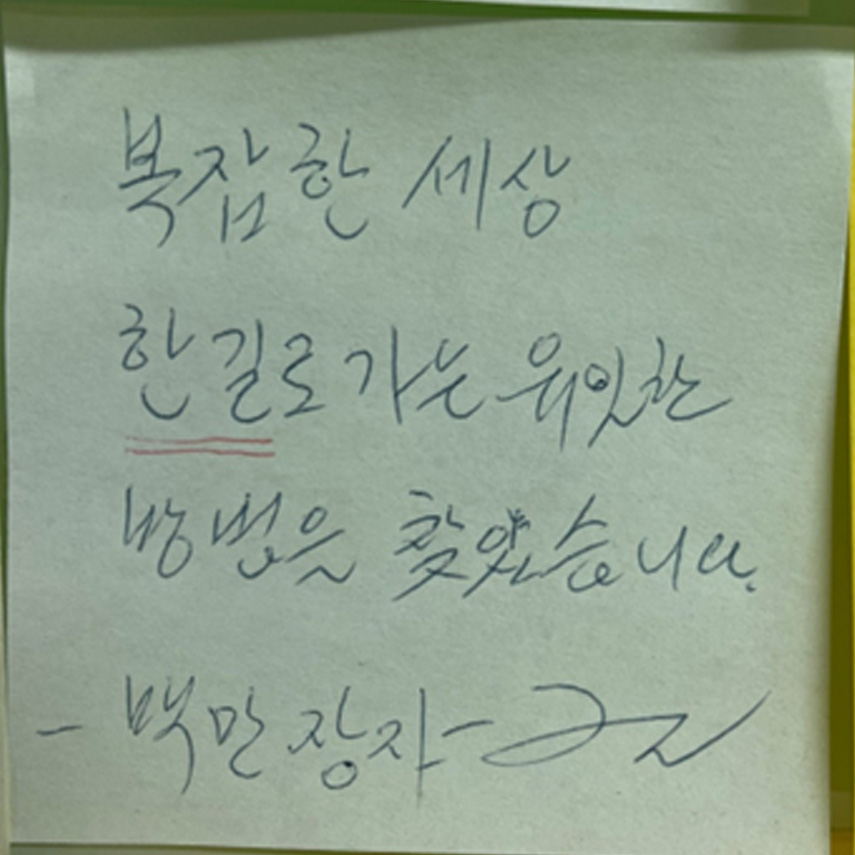 복잡한 세상
한길로 가는 위읫한
방법을 찾았습니다.
- 백만장자 -